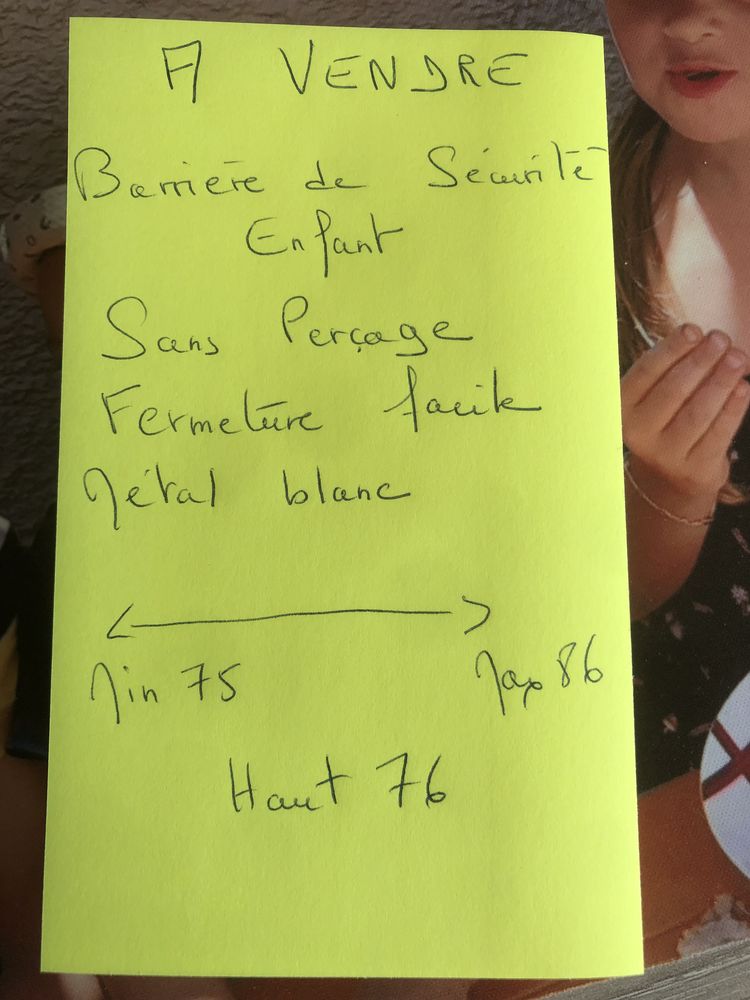 A VENDRE
Barrière de Sécurité
Enfant
Sans Perçage
Fermeture facile
Métal blanc
Min 75 Max 86
Haut 76